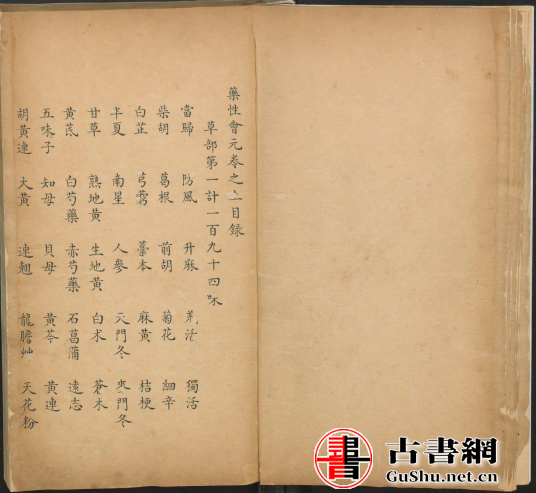 藥性會元卷之上目錄
草部第一計一百九十四味
當歸 防風 升麻 羌活 獨活
柴胡 葛根 前胡 菊花 細辛
白芷 芎藭 藁本 麻黃 桔梗
半夏 南星 人參 天門冬 麥門冬
甘草 熟地黃 生地黃 白朮 蒼朮
黃茋 白芍藥 赤芍藥 石菖蒲 遠志
五味子 知母 貝母 黃芩 黃連
胡黃連 大黃 連翹 龍膽艸 天花粉
書 古書網
GuShu.net.cn